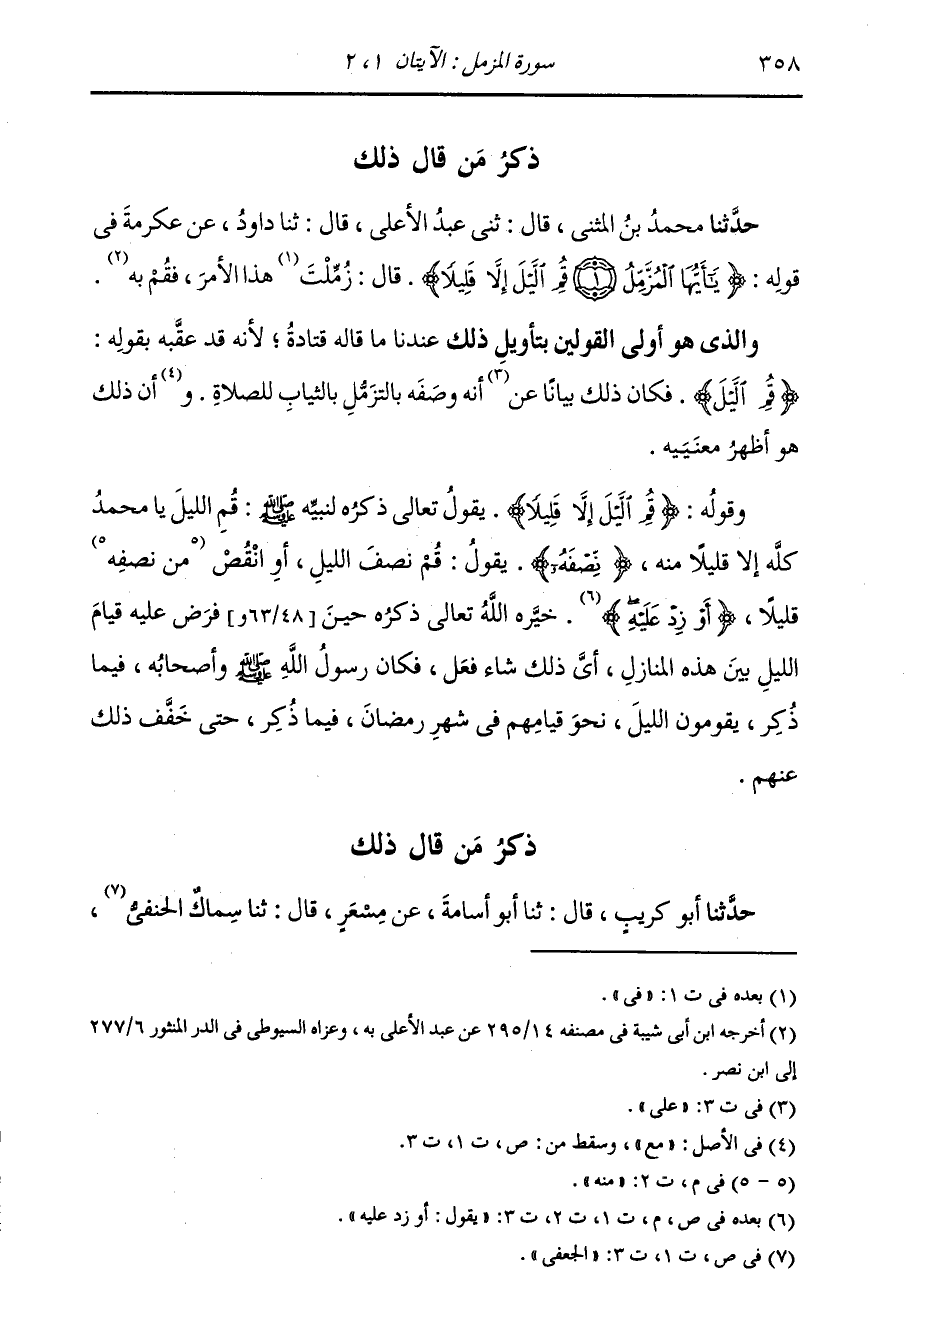 ٣٥٨ سورة المزمل : الآيتان ١ ، ٢
ذكرُ مَن قال ذلك
حدَّثنا محمدُ بنُ المثنى ، قال : ثنى عبدُ الأعلى ، قال : ثنا داودُ ، عن عكرمةَ فى
قولِه : ﴿ يَٰٓأَيُّهَا ٱلْمُزَّمِّلُ ۝١ قُمِ ٱلَّيْلَ إِلَّا قَلِيلًا ﴾ . قال : زُمِّلْتَ (١) هذا الأمرَ ، فقُمْ به (٢) .
والذى هو أولى القولين بتأويلِ ذلك عندنا ما قاله قتادةُ ؛ لأنه قد عقَّبه بقولِه :
﴿ قُمِ ٱلَّيْلَ ﴾ . فكان ذلك بيانًا عن (٣) أنه وصَفَه بالتزمُّلِ بالثيابِ للصلاةِ . و (٤) أن ذلك
هو أظهرُ معنَيَيه .
وقولُه : ﴿ قُمِ ٱلَّيْلَ إِلَّا قَلِيلًا ﴾ . يقولُ تعالى ذكرُه لنبيِّه ﷺ : قُمِ الليلَ يا محمدُ
كلَّه إلا قليلًا منه ، ﴿ نِّصْفَهُۥٓ ﴾ . يقولُ : قُمْ نصفَ الليلِ ، أوِ انْقُصْ (٥ من نصفِه ٥)
قليلًا ، ﴿ أَوْ زِدْ عَلَيْهِ ۖ ﴾ (٦) . خيَّره اللَّهُ تعالى ذكرُه حينَ [٦٣/٤٨و] فرَض عليه قيامَ
الليلِ بينَ هذه المنازلِ ، أىَّ ذلك شاء فعَل ، فكان رسولُ اللَّهِ ﷺ وأصحابُه ، فيما
ذُكِر ، يقومون الليلَ ، نحوَ قيامِهم فى شهرِ رمضانَ ، فيما ذُكِر ، حتى خَفَّف ذلك
عنهم .
ذكرُ مَن قال ذلك
حدَّثنا أبو كريبٍ ، قال : ثنا أبو أسامةَ ، عن مِسْعَرٍ ، قال : ثنا سِماكٌ الحنفىُّ (٧) ،
(١) بعده فى ت ١: « فى » .
(٢) أخرجه ابن أبى شيبة فى مصنفه ٢٩٥/١٤ عن عبد الأعلى به ، وعزاه السيوطى فى الدر المنثور ٢٧٧/٦
إلى ابن نصر .
(٣) فى ت ٣: « على » .
(٤) فى الأصل : « مع » ، وسقط من : ص ، ت ١، ت ٣.
(٥ - ٥) فى م ، ت ٢: « منه » .
(٦) بعده فى ص ، م ، ت ١، ت ٢، ت ٣: « يقول : أو زد عليه » .
(٧) فى ص ، ت ١، ت ٣: « الجعفى » .